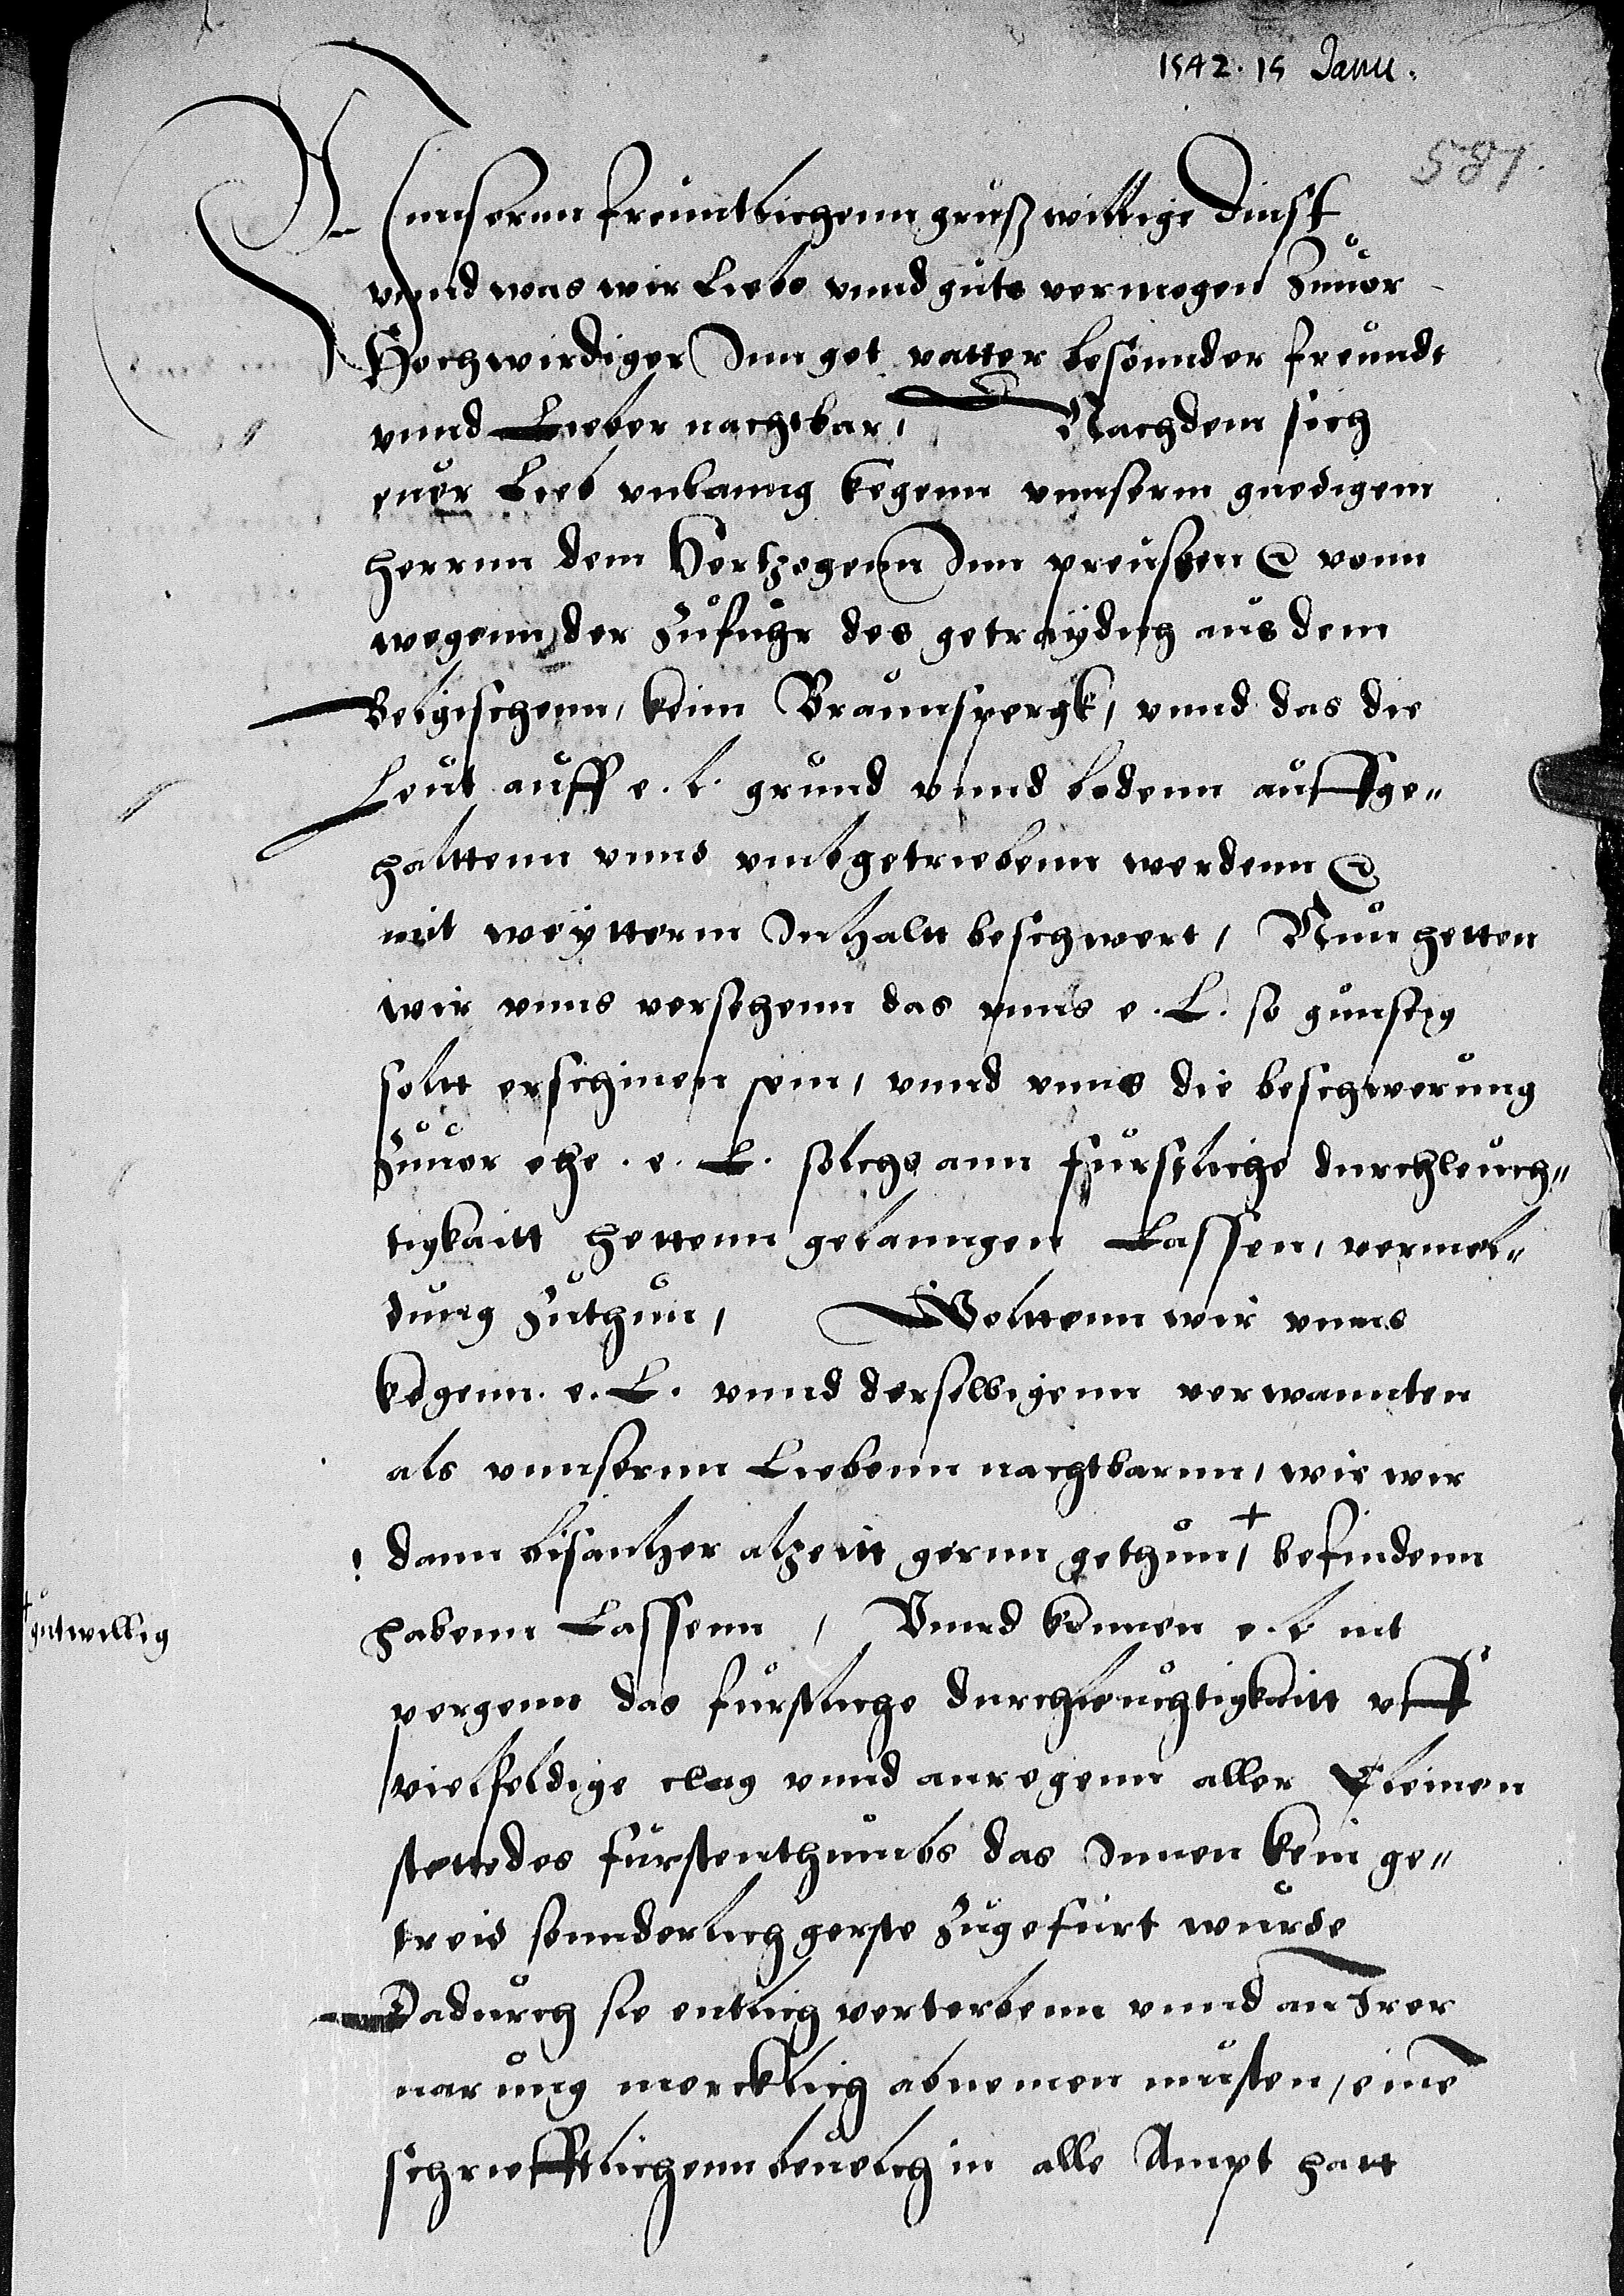 1542. 15 Janu.
581.
Unnserm freuntlichenn grus willige dinst
vnnd was wir Liebs vnnd guts vermogen Zuuor
Hochwirdiger Inn got vatter besonnder freundt
vnnd Lieber nachtbar, Nachdem sich
euer Lieb vnlanng kegenn vnnserm gnedigem
herrnn dem Hertzogenn Inn preussen &c vonn
wegenn der Zufuhr des getraydichs aus dem
Belgischenn, keim Braunspergk, vnnd das die
Leut auff e. l. grund vnnd bodenn auffge„
halttenn vnns vmbgetriebenn werdenn &c
mit weytterm Inhaltt beschwert, Nun hetten
wir vnns versehenn das vnns e. L. so gunstig
soltt erschinen sein, vnnd vnns die beschwerung
Zuuor ehe. e. L. solchs ann furstliche durchleuch„
tigkaitt hettenn gelanngen Lassen, vermel„
dung Zuthun, Woltenn wir vnns
kegenn. e. L. vnnd derselbigenn verwannten
als vnnsernn Liebenn nachtbarnn, wie wir
dann bisanher alzeitt gernn gethun, + befindenn
+ gutwillig
habenn Lassenn, Vnnd konnen e. l. nit
pergenn das furstliche durchleuchtigkaitt vff
vielfeldige clag vnnd anregenn aller Cleinen
stette des furstenthumbs das Innen kein ge„
treid sonnderlich gerste Zugefurt wurde
Dadurch sie entlich verterbenn vnnd an Irer
narung mercklich abnemen musten, eine
schriefftlichenn beuelch in alle Ampt hatt